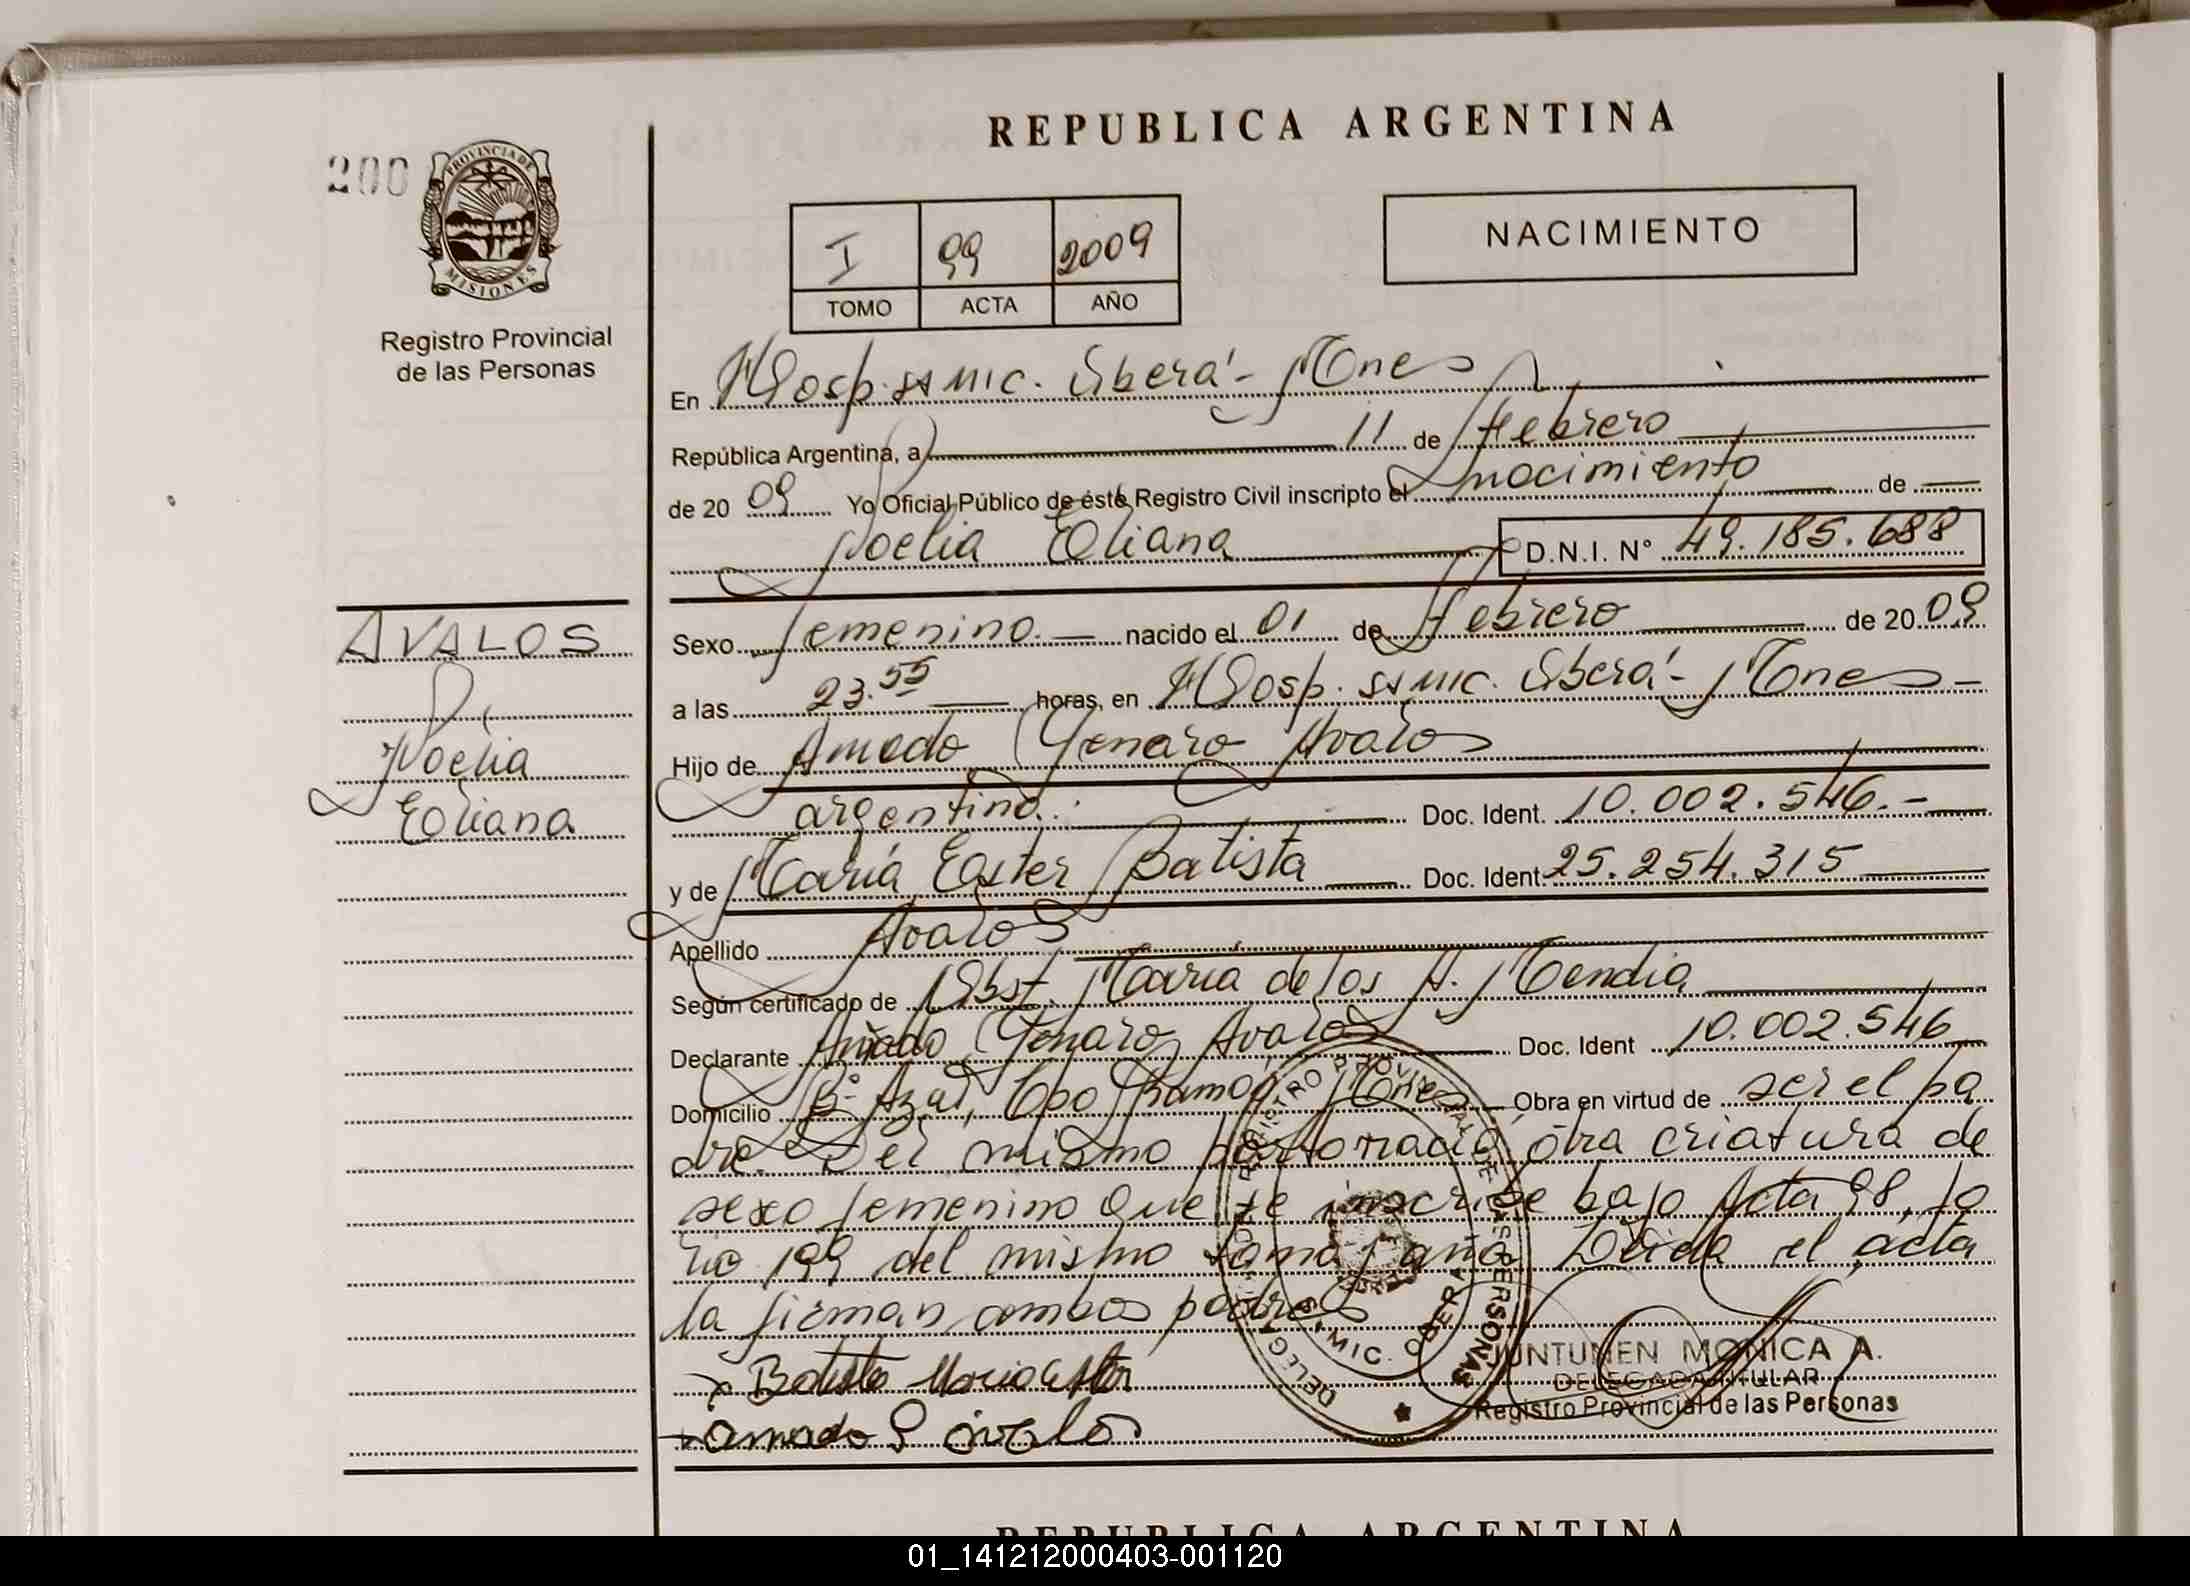 REPUBLICA ARGENTINA
200
PROVINCIA DE
MISIONES
Registro Provincial
de las Personas
I 99 2009
TOMO ACTA AÑO
NACIMIENTO
En Hosp. SAMIC. Oberá - Mones
República Argentina, a 11 de Febrero
de 20 09 Yo Oficial Público de éste Registro Civil inscripto el nacimiento de
Noelia Eliana D.N.I. N° 49.185.688
AVALOS
Noelia
Eliana
Sexo femenino nacido el 01 de febrero de 20 09
a las 23.55 horas, en Hosp. SAMIC. Oberá - Mones
Hijo de Amado Genaro Avalos
argentino. Doc. Ident. 10.002.546.-
y de María Ester Batista Doc. Ident. 25.254.315
Apellido Avalos
Según certificado de Obst. María de los A. Mendia
Declarante Amado Genaro Avalos Doc. Ident 10.002.546
Domicilio B° Azul, Cpo Ramón Mones Obra en virtud de ser el pa
dre. Del mismo parto nació otra criatura de
sexo femenino que se inscribe bajo Acta 98, fo
lio 199 del mismo tomo y año. Leída el acta
la firman ambos padres
Batista Maria Ester
amado G avalos
REGISTRO PROVINCIAL DE LAS PERSONAS
DELEGACION
SAMIC. OBERA
JUNTUNEN MONICA A.
DELEGADA TITULAR
Registro Provincial de las Personas
REPUBLICA ARGENTINA
01_141212000403-001120